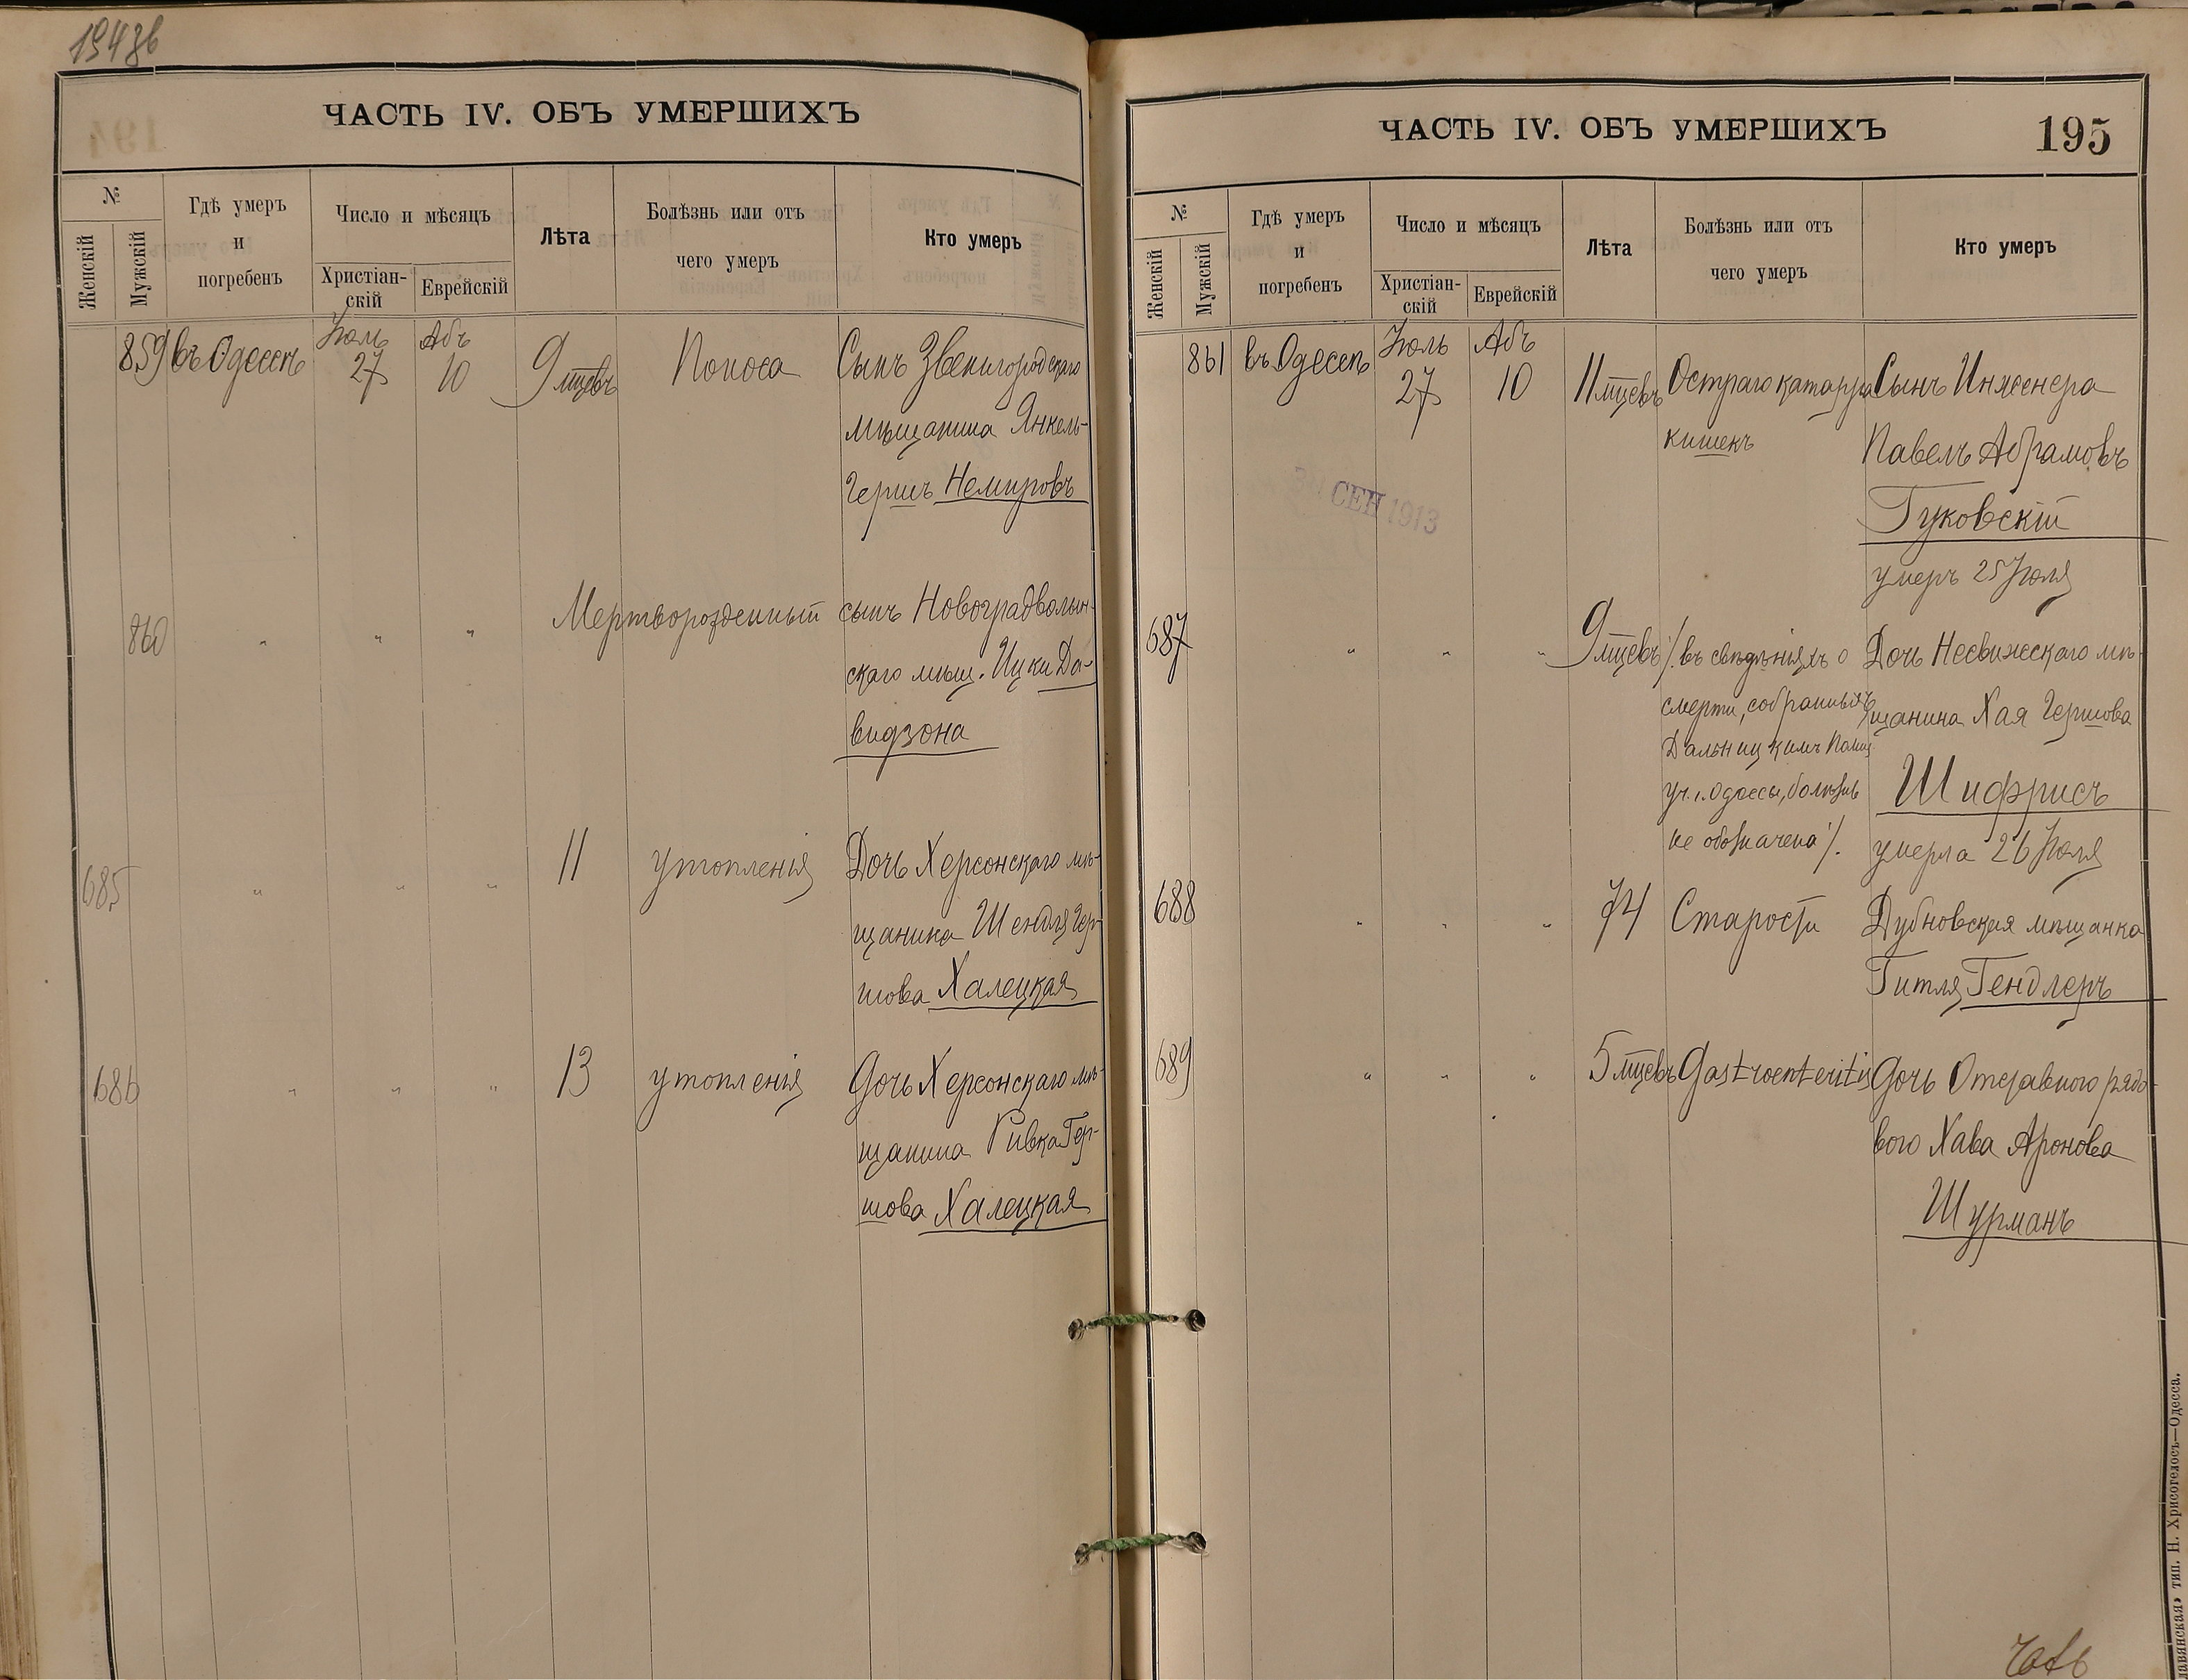 ЧАСТЬ IV. ОБЪ УМЕРШИХЪ
№
Женскій
Мужскій
Гдѣ умеръ
и
погребенъ
Число и мѣсяцъ
Христіан-
скій
Еврейскій
Лѣта
Болѣзнь или отъ
чего умеръ
Кто умеръ
859 въ Одессѣ Іюль 27 Абъ 10 9 мцевъ Поноса Сынъ Звенигородскаго
мѣщанина Янкель-
Гершъ Немировъ
860 " " " Мертворожденный сынъ Новоградволын-
скаго мѣщ. Ицки Да-
видзона
685 " " " 11 утопленія Дочь Херсонскаго мѣ-
щанина Шендля Гер-
шова Халецкая
686 " " " 13 утопленія Дочь Херсонскаго мѣ-
щанина Ривка Гер-
шова Халецкая
ЧАСТЬ IV. ОБЪ УМЕРШИХЪ
195
№
Женскій
Мужскій
Гдѣ умеръ
и
погребенъ
Число и мѣсяцъ
Христіан-
скій
Еврейскій
Лѣта
Болѣзнь или отъ
чего умеръ
Кто умеръ
861 въ Одессѣ Іюль 27 Абъ 10 11 мцевъ Остраго катарра
кишекъ
Сынъ Инженера
Павелъ Абрамовъ
Гуковскій
умеръ 25 Іюля
СЕН 1913
687 " " " 9 мцевъ /. въ свѣдѣніяхъ о
смерти, собранныхъ
Дальницкимъ Полиц
уч. г. Одессы, болѣзнь
не обозначена /.
Дочь Несвижескаго мѣ-
щанина Хая Гершова
Шифрисъ
умерла 26 Іюля
688 " " " 74 Старости Дубновская мѣщанка
Гитля Гендлеръ
689 " " " 5 мцевъ Gastroenteritis Дочь Отставного рядо-
вого Хава Аронова
Шурманъ
тип. Н. Хрисогелосъ—Одесса.